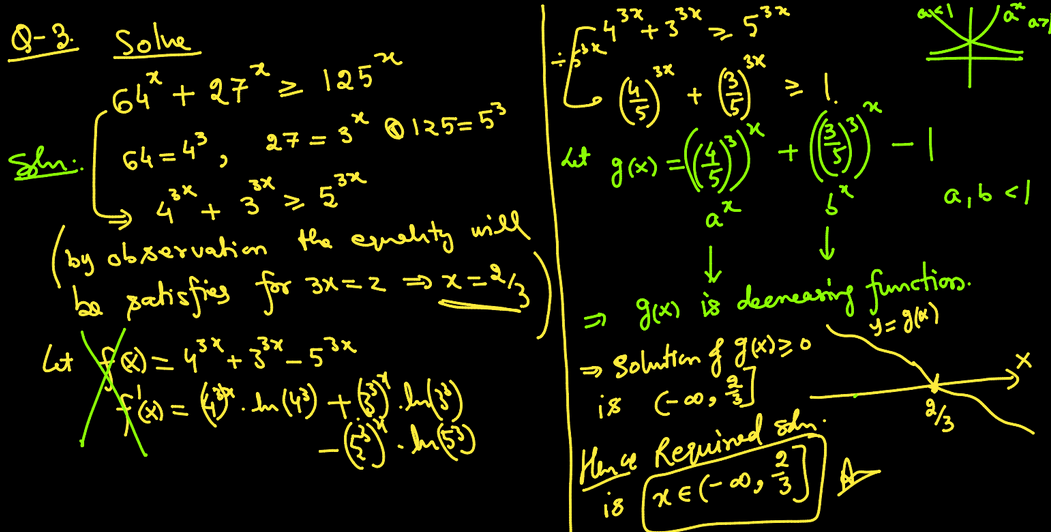 Q-3. Solve
64^x + 27^x ≥ 125^x
Soln:
64 = 4^3, 27 = 3^x @ 125 = 5^3
⇒ 4^{3x} + 3^{3x} ≥ 5^{3x}
(by observation the equality will
be satisfies for 3x = 2 ⇒ x = 2/3)
Let f(x) = 4^{3x} + 3^{3x} - 5^{3x}
f'(x) = (4^3)^x · ln(4^3) + (3^3)^x · ln(3^3)
- (5^3)^x · ln(5^3)
4^{3x} + 3^{3x} ≥ 5^{3x}
÷ 5^{3x}
(4/5)^{3x} + (3/5)^{3x} ≥ 1.
a<1 a^x a>1
Let g(x) = ((4/5)^3)^x + ((3/5)^3)^x - 1
a^x b^x a, b < 1
⇒ g(x) is decreasing function.
y = g(x)
⇒ solution of g(x) ≥ 0
is (-∞, 2/3]
x
2/3
Hence Required soln.
is x ∈ (-∞, 2/3] A